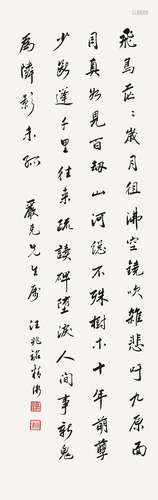 飛鳥茫〻歲月徂沸空鐃吹雜悲吁九原面
目真如見百劫山河總不殊樹木十年萌蘗
少斷蓬千里往來疏讀碑墮淚人間事新鬼
為隣影未孤
嚴克先生屬 汪兆銘精衛